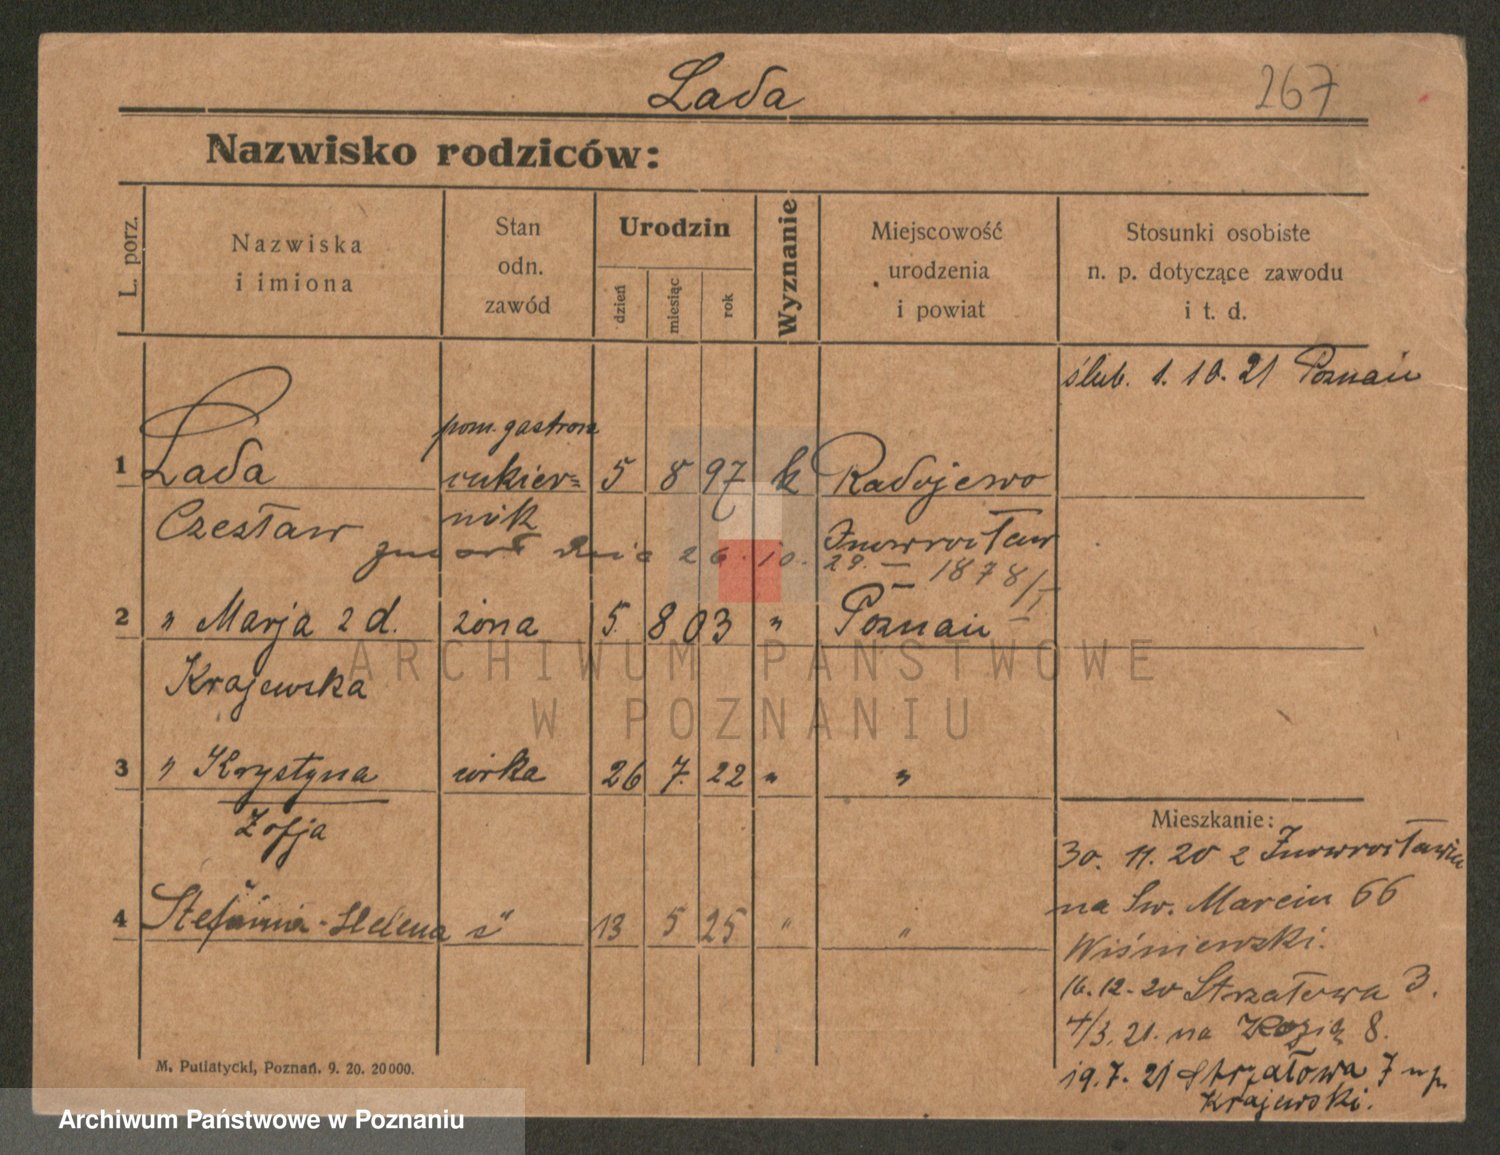 Lada
267
Nazwisko rodziców:
L. porz.
Nazwiska
i imiona
Stan
odn.
zawód
Urodzin
dzień
miesiąc
rok
Wyznanie
Miejscowość
urodzenia
i powiat
Stosunki osobiste
n. p. dotyczące zawodu
i t. d.
ślub. 1. 10. 21 Poznań
pom. gastron
1 Lada cukier= 5 8 97 k Radojewo
Czesław nik Inowrocław
zmarł dnia 26. 10. 29. 1878/I
2 " Marja z d. żona 5. 8 03 " Poznań
Krajewska
3 " Krystyna córka 26 7. 22 " "
Zofja
4 Stefania-Helena c" 13 5 25 " "
Mieszkanie:
30. 11. 20 z Inowrocławia
na Św. Marcin 66
Wiśniewski.
16.12.20 Strzałowa 3.
4/3. 21. na Kozią 8.
19.7.21 Strzałowa 7 u p.
Krajewski.
M. Putiatycki, Poznań. 9. 20. 20000.
ARCHIWUM PAŃSTWOWE
W POZNANIU
Archiwum Państwowe w Poznaniu